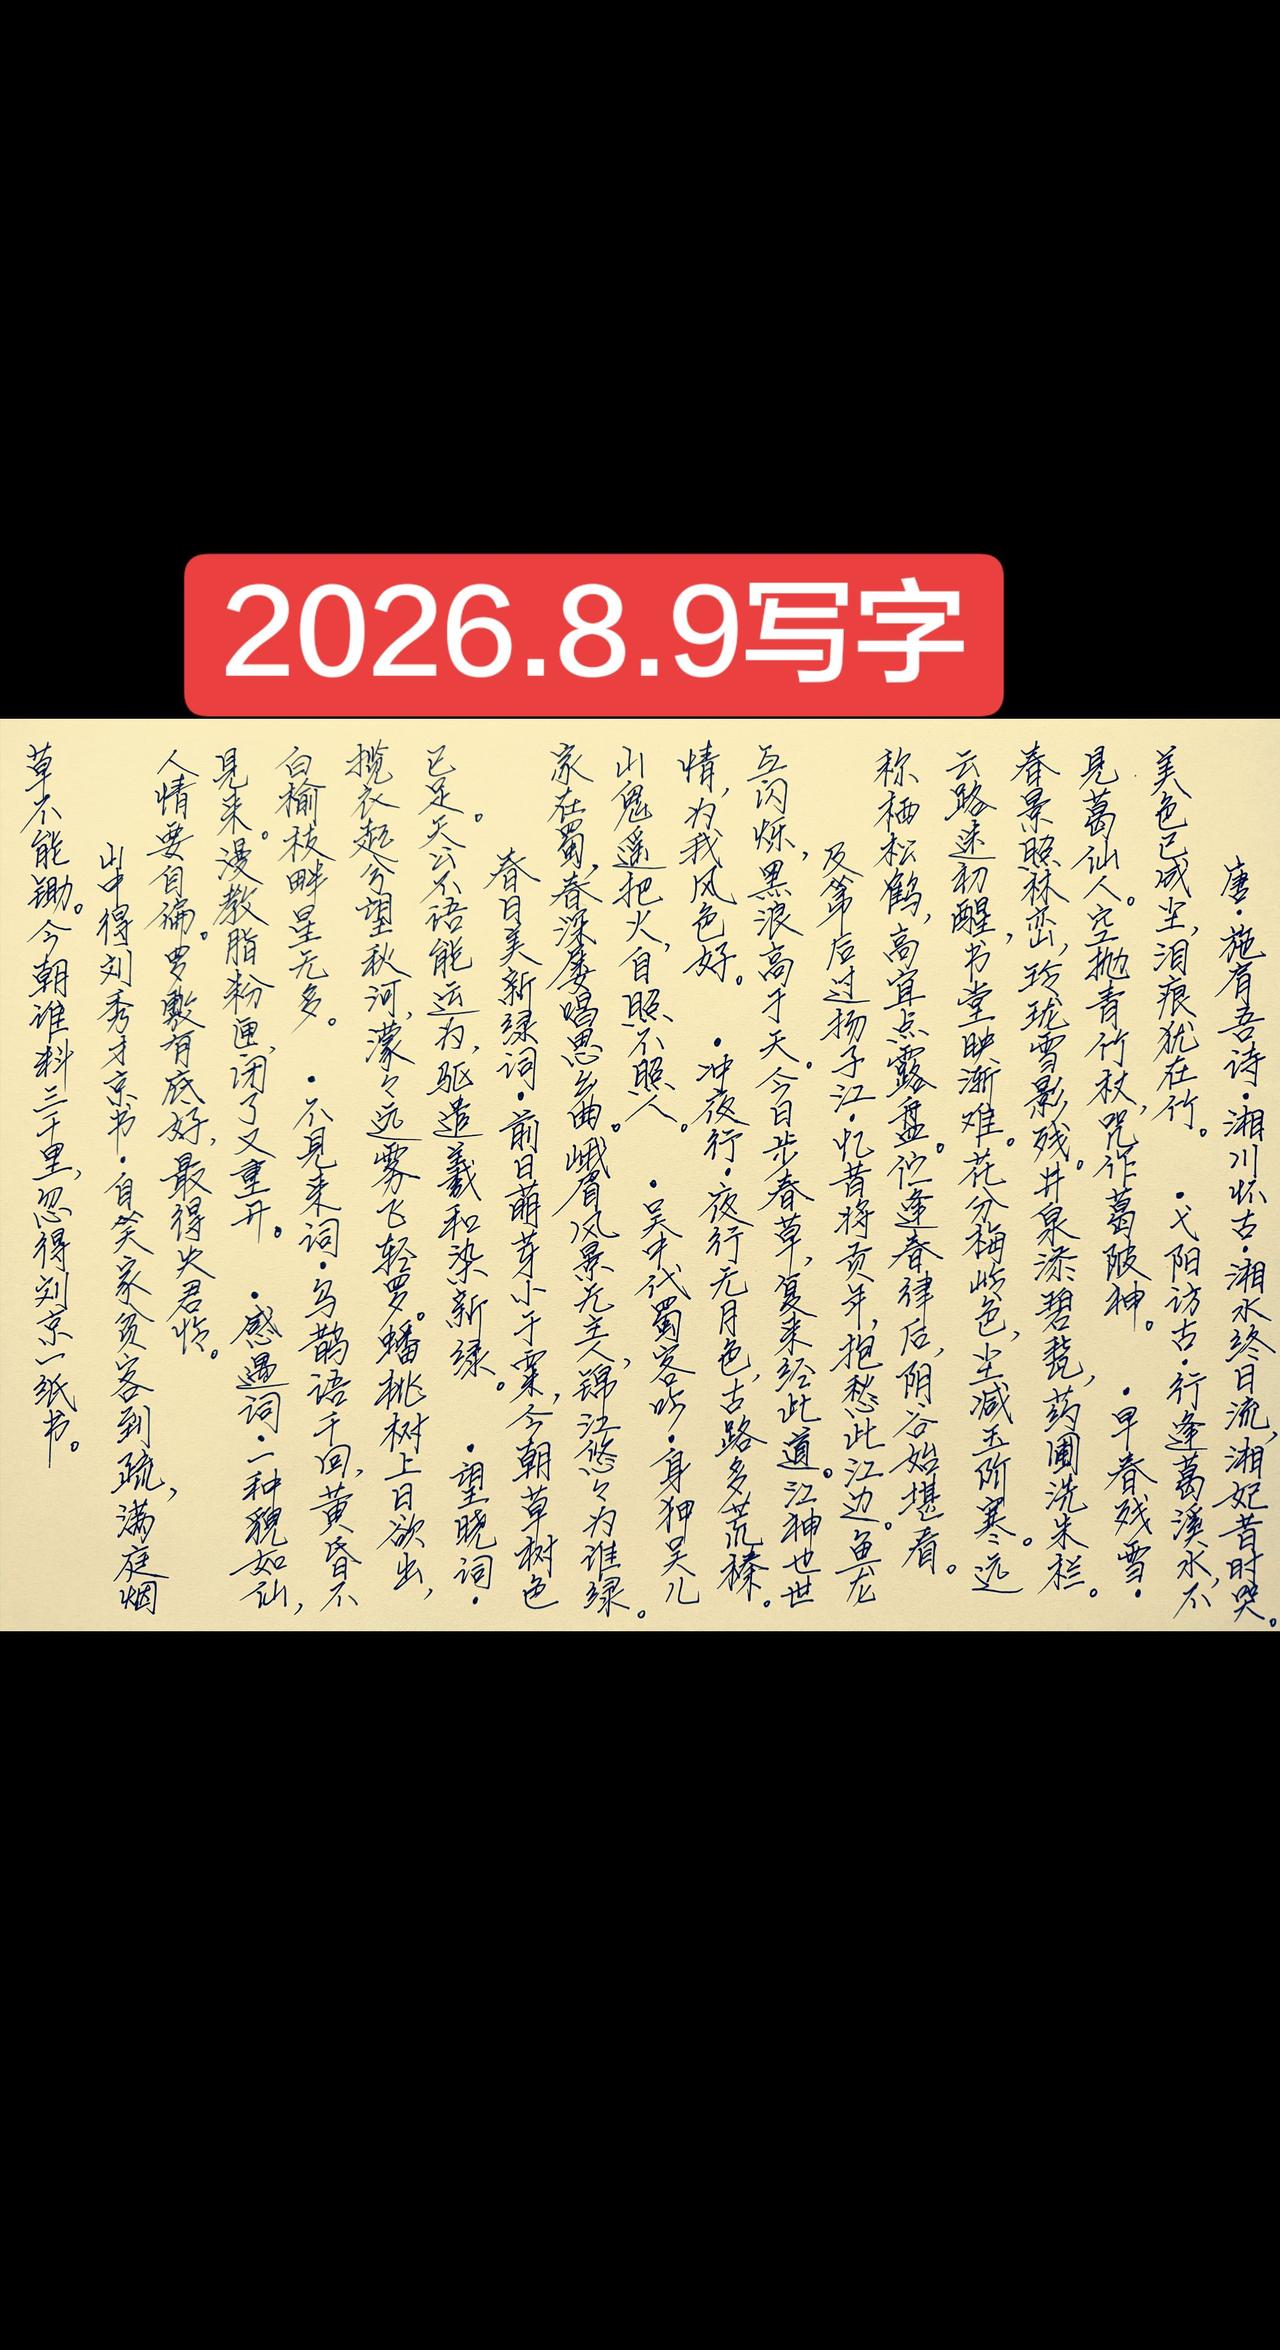 2026.8.9写字
唐·施肩吾诗·湘川怀古·湘水终日流,湘妃昔时哭。
美色已成尘,泪痕犹在竹。·弋阳访古·行逢葛溪水,不
见葛仙人。空抛青竹杖,咒作葛陂神。·早春残雪·
春景照林峦,玲珑雪影残。井泉添碧甃,药圃洗朱栏。
云路迷初醒,书堂映渐难。花分梅岭色,尘减玉阶寒。远
称栖松鹤,高宜点露盘。伫逢春律后,阴谷始堪看。
及第后过扬子江·忆昔将贡年,抱愁此江边。鱼龙
互闪烁,黑浪高于天。今日步春草,复来经此道。江神也世
情,为我风色好。·冲夜行·夜行无月色,古路多荒榛。
山鬼遥把火,自照不照人。·吴中代蜀客吟·身狎吴儿
家在蜀,春深屡唱思乡曲。峨眉风景无主人,锦江悠々为谁绿。
春日美新绿词·前日萌芽小于粟,今朝草树色
已足。天公不语能运为,驱遣羲和染新绿。·望晓词·
揽衣起兮望秋河,濛々远雾飞轻罗。蟠桃树上日欲出,
白榆枝畔星无多。·不见来词·乌鹊语千回,黄昏不
见来。漫教脂粉匣,闭了又重开。·感遇词·一种貌如仙,
人情要自偏。罗敷有底好,最得使君怜。
山中得刘秀才京书·自笑家贫客到疏,满庭烟
草不能锄。今朝谁料三千里,忽得刘京一纸书。